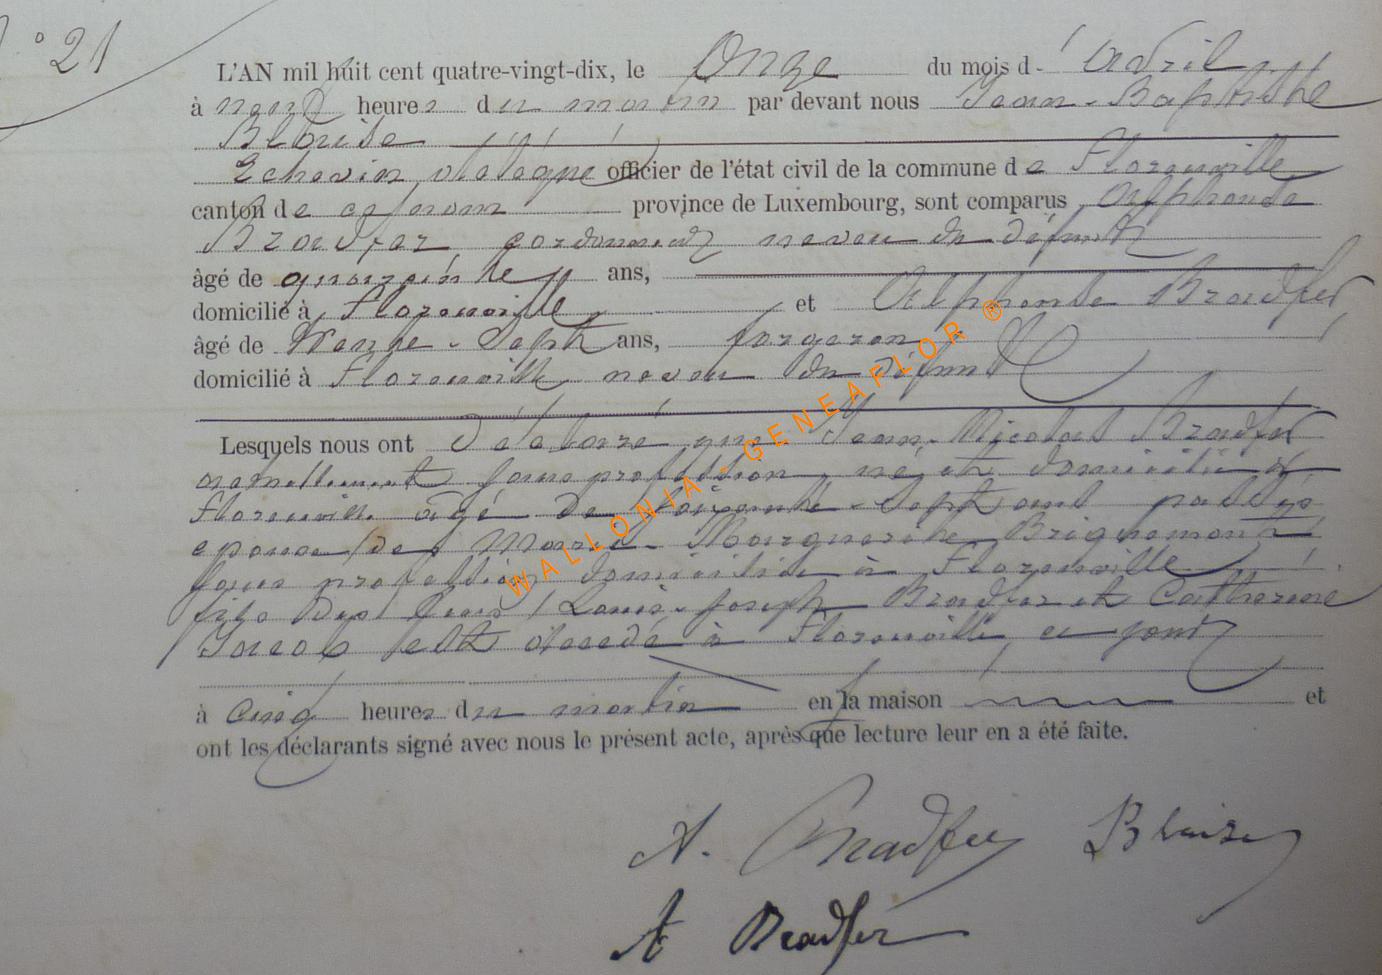 N° 21
L'AN mil huit cent quatre-vingt-dix, le Onze du mois d'avril
à neuf heures du matin par devant nous Jean-Baptiste
Blaise
Echevin délégué officier de l'état civil de la commune de Florenville
canton de province de Luxembourg, sont comparus Alphonse
Bradfer cordonnier neveu du défunt
âgé de quarante ans,
domicilié à Florenville et Alphonse Bradfer
âgé de trente-sept ans, forgeron
domicilié à Florenville neveu du défunt
Lesquels nous ont déclaré que Jean-Nicolas Bradfer
actuellement sans profession né et domicilié à
Florenville âgé de soixante-sept ans passés
epoux de Marie-Marguerite Briquemont
sans profession domiciliée à Florenville
fils des Louis-Joseph Bradfer et Catherine
Jacob est décédé à Florenville ce jour
à cinq heures du matin en la maison et
ont les déclarants signé avec nous le présent acte, après que lecture leur en a été faite.
A. Bradfer Blaise
A Bradfer
WALLONIA - GENEAFLOR ®